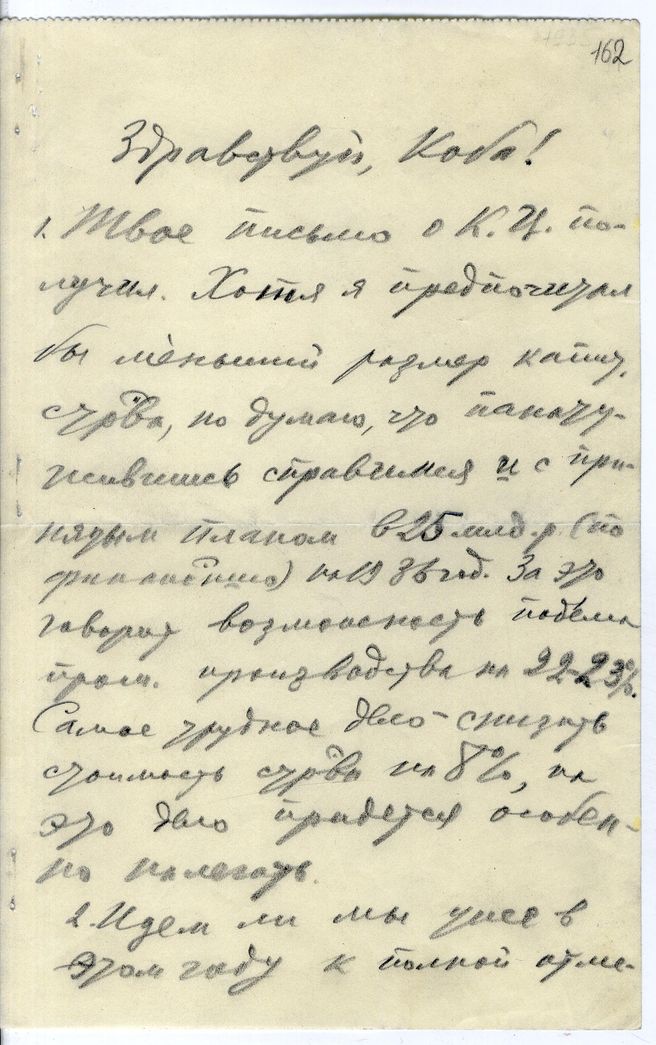 162
Здравствуй, Коба!
1. Твое письмо о К.Ц. по-
лучил. Хотя я предпочитал
бы меньший размер капит.
стр-ва, но думаю, что понату-
жившись справимся и с при-
нятым планом в 25 млд. р. (по
) на 1936 год. За это
говорит возможность подъема
пром. производства на 22-23%.
Самое трудное дело – снизить
стоимость стр-ва на 8%, на
это дело придется особен-
но налегать.
2. Идем ли мы уже в
этом году к полной отме-